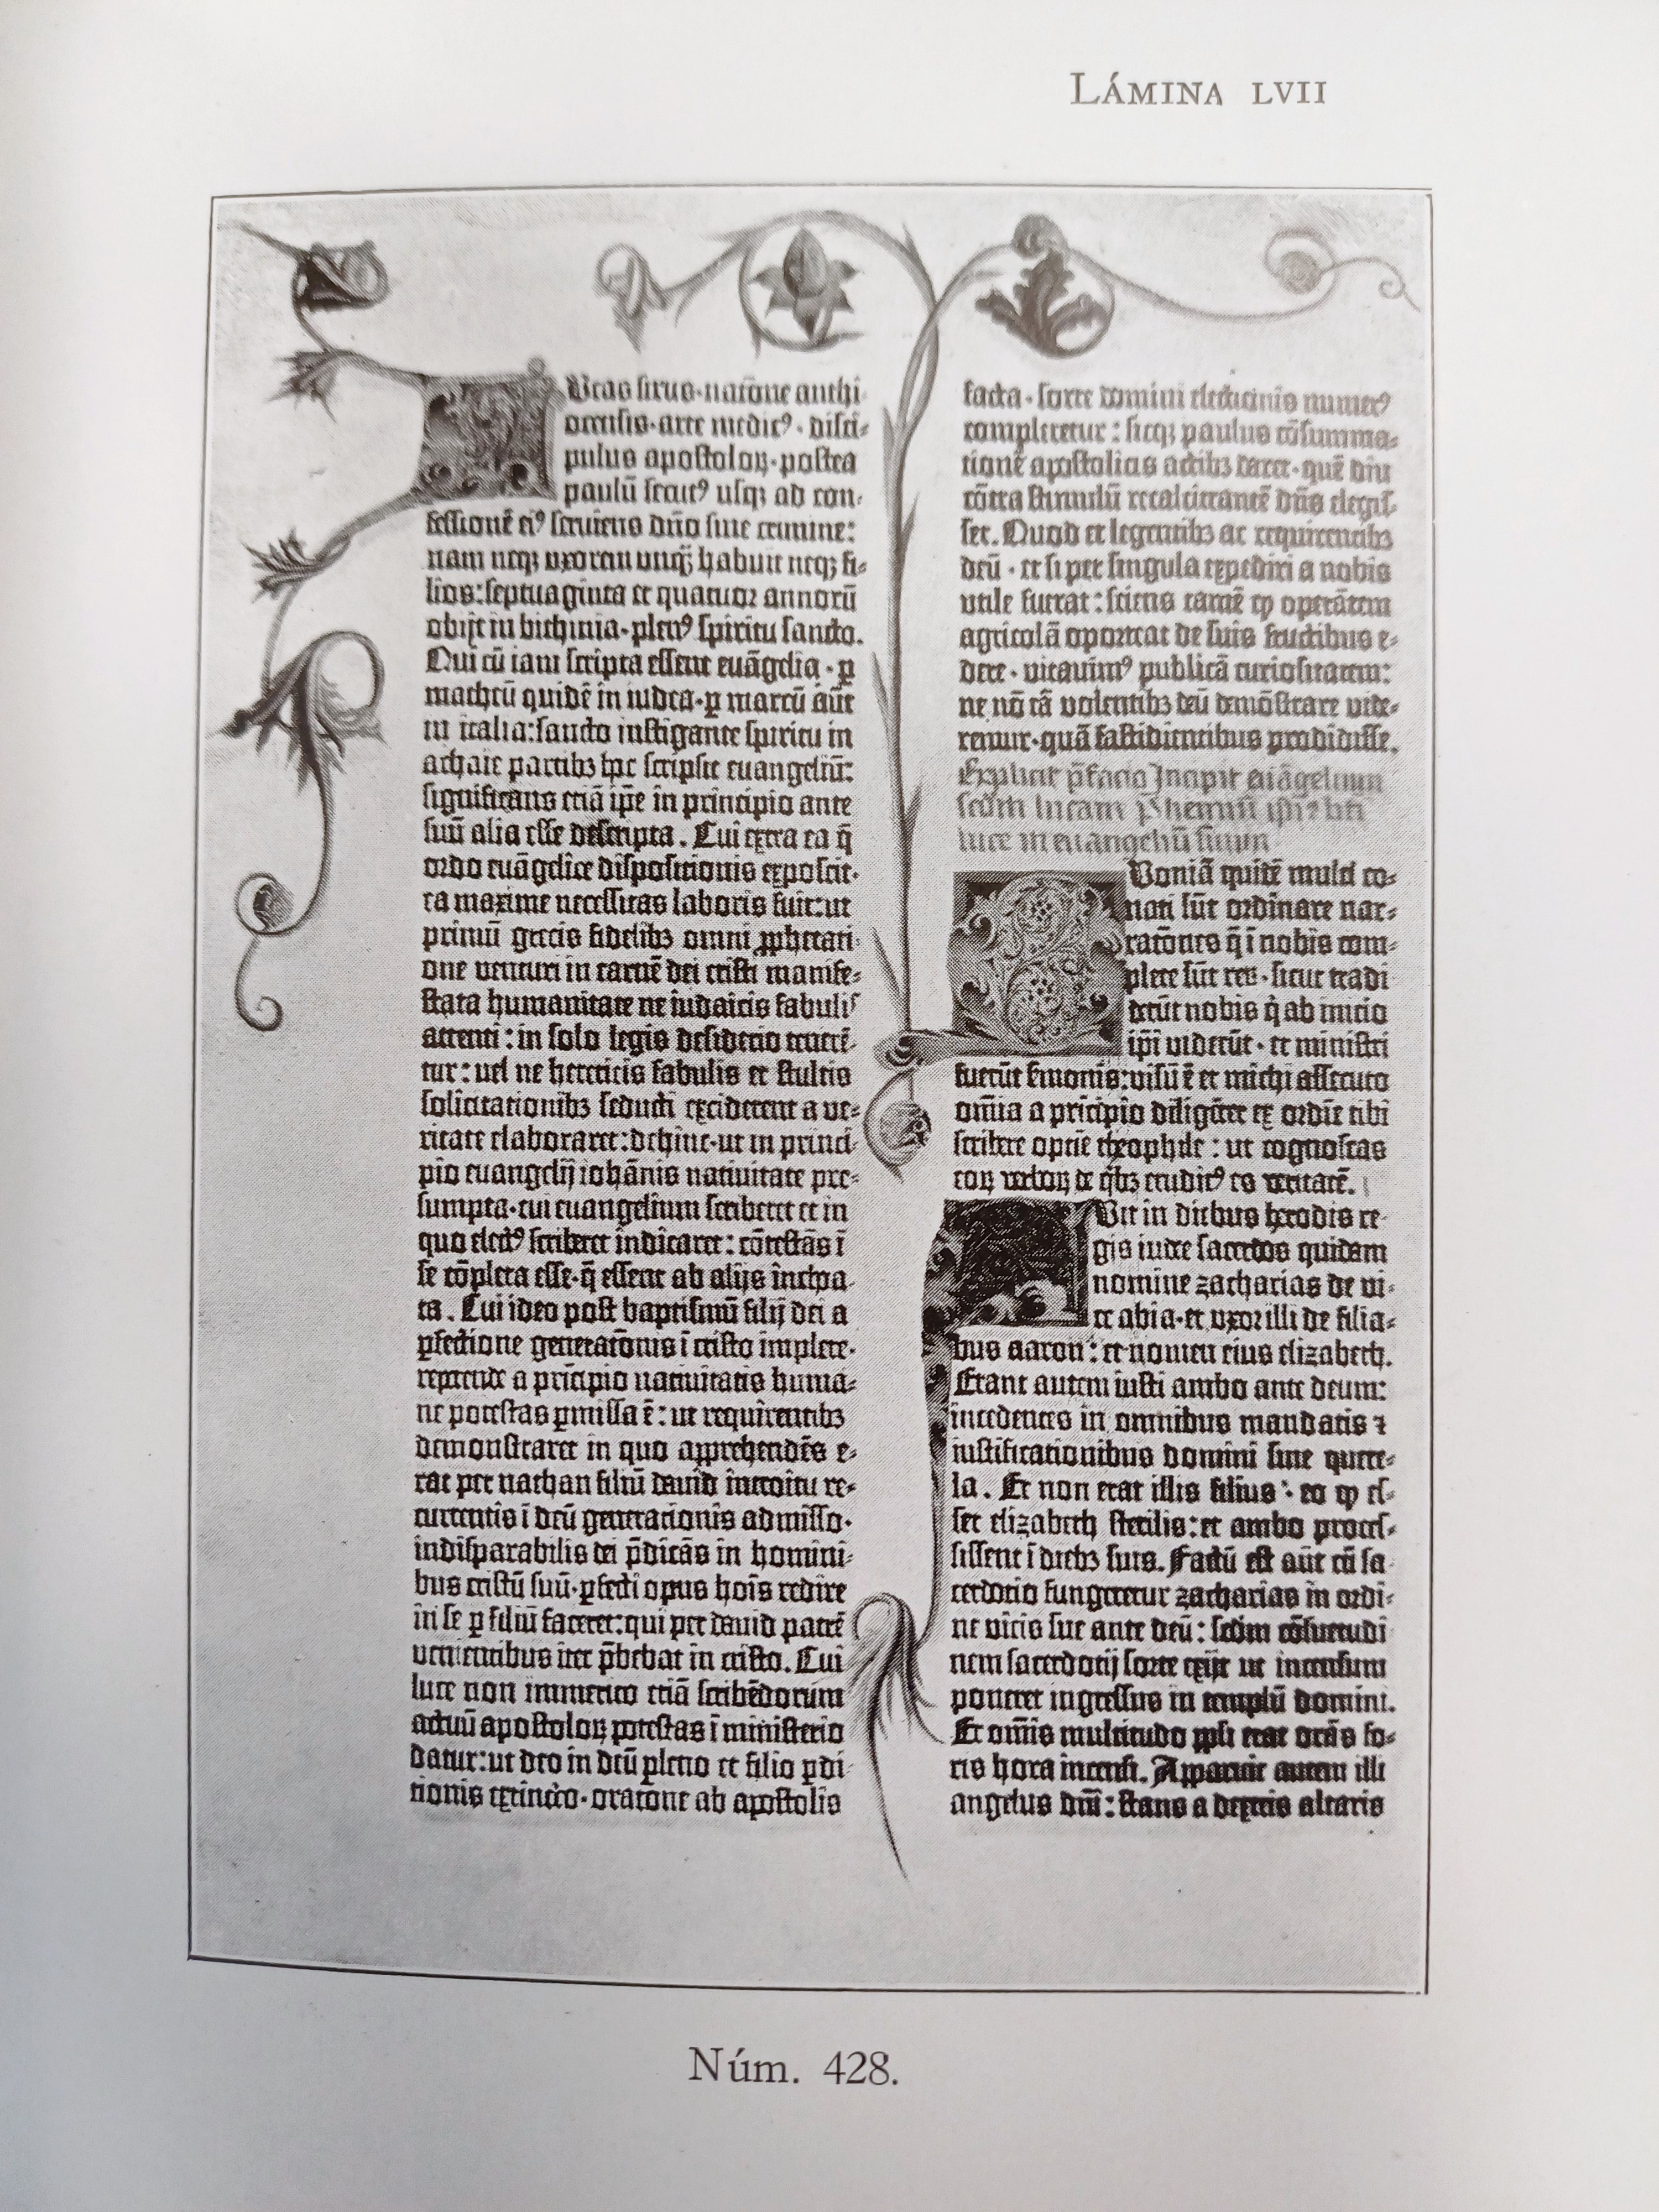 LÁMINA LVII
Ucas sirus·natōne anthi-
ocensis·arte medicꝰ·disci-
pulus apostoloꝝ·postea
paulū secutꝰ usqꝫ ad con-
fessionē eiꝰ serviens dn̄o sine crimine:
nam neqꝫ uxorem unqꝫ habuit neqꝫ fi-
lios: septuaginta et quatuor annorū
obijt in bithinia·plenꝰ spiritu sancto.
Qui cū iam scripta essent euāgelia·ꝑ
matheū quidē in iudea·ꝑ marcū aūt
in italia: sancto instigante spiritu in
achaie partibꝫ hoc scripsit euangeliū:
significans etiā ip̄e in principio ante
suū alia esse descripta. Cui extra ea q̄
ordo euāgelice dispositionis exposcit·
ea maxime necessitas laboris fuit: ut
primū grecis fidelibꝫ omni ꝓphetati-
one venturi in carnē dei cristi manife-
stata humanitate ne iudaicis fabulis
attenti: in solo legis desiderio tenerē-
tur: vel ne hereticis fabulis et stultis
solicitationibꝫ seducti exciderent a ve-
ritate elaboraret: dehinc·ut in princi-
pio euangelij iohānis nativitate pre-
sumpta·cui euangelium scriberet et in
quo electꝰ scriberet indicaret: cōtestās ī
se cōpleta esse·q̄ essent ab alijs inchoa-
ta. Cui ideo post baptismū filij dei a
ꝑfectione generatōnis ī cristo implete·
repetende a prīcipio nativitatis huma-
ne potestas ꝑmissa ē: ut requirentibꝫ
demonstraret in quo apprehendēs e-
rat per nathan filiū david introitu re-
currentis ī deū generationis admisso·
indisparabilis dei p̄dicās in homini-
bus cristū suū·ꝑfecti opus hoīs redire
in se ꝑ filiū faceret: qui per david patrē
venientibus iter p̄bebat in cristo. Cui
luce non immerito etiā scribēdorum
actuū apostoloꝝ potestas ī ministerio
datur: ut deo in deū pleno et filio ꝑdi-
tionis extincto·oratone ab apostolis
facta·sorte domini electionis numerꝰ
compleretur: sicqꝫ paulus cōsumma-
tionē apostolicis actibꝫ daret·quē diu
cōtra stimulū recalcitrantē dn̄s elegis-
set. Quod et legentibꝫ ac requirentibꝫ
deū·et si per singula expediri a nobis
utile fuerat: sciens tamē ꝙ operātem
agricolā oporteat de suis fructibus e-
dere·vitavimꝰ publicā curiositatem:
ne nō tā volentibꝫ deū demōstrare vide-
remur·quā fastidientibus prodidisse.
Explicit p̄facio Incipit euāgelium
scdm lucam Prohemiū ip̄iꝰ bti
luce in euangeliū suum
Uoniā quidē multi co-
nati sūt ordinare nar-
ratōnes q̄ ī nobis com-
plete sūt reꝝ·sicut tradi
derūt nobis q̇ ab inicio
ip̄i viderūt·et ministri
fuerūt s̄monis: visū ē et michi assecuto
om̄ia a prīcipio diligēter ex ordīe tibi
scribere optīe theophile: ut cognoscas
eoꝝ verboꝝ de q̇bꝫ eruditꝰ es veritatē.
Uit in diebus herodis re-
gis iudee sacerdos quidam
nomine zacharias de vi-
ce abia·et uxor illi de filia-
bus aaron: et nomen eius elizabeth.
Erant autem iusti ambo ante deum:
incedentes in omnibus mandatis ⁊
iustificationibus domini sine quere-
la. Et non erat illis filius: eo ꝙ es-
set elizabeth sterilis: et ambo proces-
sissent ī diebꝫ suis. Factū est aūt cū sa-
cerdotio fungeretur zacharias in ordi-
ne vicis sue ante deū: scdm cōsuetudi-
nem sacerdotij sorte exijt ut incensum
poneret ingressus in templū domini.
Et om̄is multitudo ppli erat orās fo-
ris hora incensi. Apparuit autem illi
angelus dn̄i: stans a dextris altaris
Núm. 428.